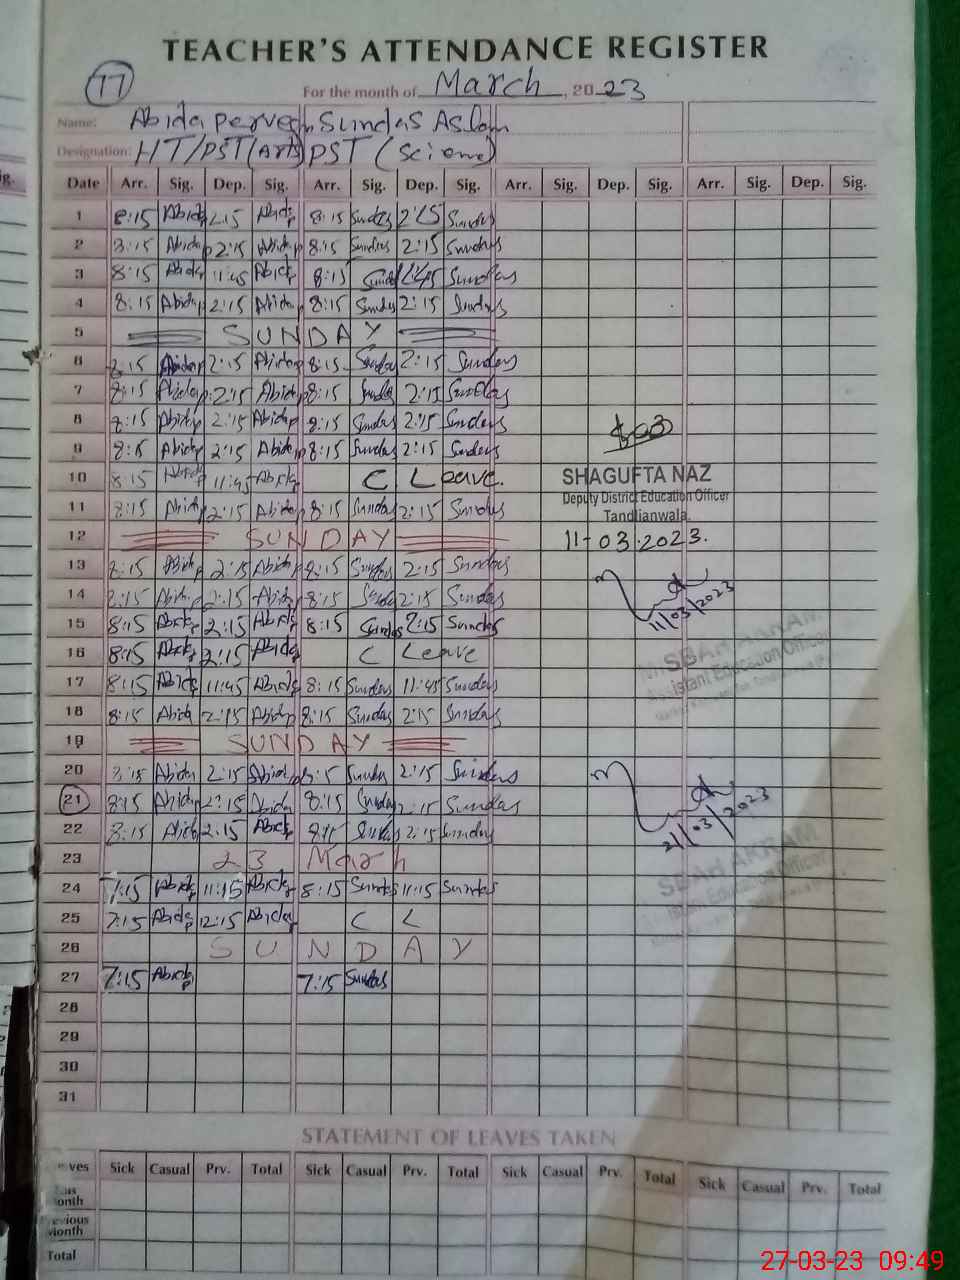 TEACHER'S ATTENDANCE REGISTER
17
For the month of March, 2023
Name: Abida Perveen Sundas Aslam
Designation: HT/PST(Arts) PST (Science)
Date Arr. Sig. Dep. Sig. Arr. Sig. Dep. Sig. Arr. Sig. Dep. Sig. Arr. Sig. Dep. Sig.
1 8:15 Abida 2:15 Abida 8:15 Sundas 2:15 Sundas
2 8:15 Abida p 2:15 Abida p 8:15 Sundas 2:15 Sundas
3 8:15 Abida 11:45 Abida 8:15 Sundas 11:45 Sundas
4 8:15 Abida p 2:15 Abida p 8:15 Sundas 2:15 Sundas
5 SUNDAY
6 8:15 Abida p 2:15 Abida p 8:15 Sundas 2:15 Sundas
7 8:15 Abida p 2:15 Abida p 8:15 Sundas 2:15 Sundas
8 8:15 Abida p 2:15 Abida p 8:15 Sundas 2:15 Sundas
9 8:15 Abida p 2:15 Abida p 8:15 Sundas 2:15 Sundas
10 8:15 Abida p 11:45 Abida p C Leave.
SHAGUFTA NAZ
Deputy District Education Officer
Tandlianwala.
11 8:15 Abida p 2:15 Abida p 8:15 Sundas 2:15 Sundas
12 SUNDAY
11-03-2023.
13 8:15 Abida p 2:15 Abida p 8:15 Sundas 2:15 Sundas
14 8:15 Abida p 2:15 Abida p 8:15 Sundas 2:15 Sundas
11/03/2023
15 8:15 Abida p 2:15 Abida p 8:15 Sundas 2:15 Sundas
16 8:15 Abida p 2:15 Abida p C Leave
MISBAH AKRAM
Assistant Education Officer
17 8:15 Abida p 11:45 Abida p 8:15 Sundas 11:45 Sundas
18 8:15 Abida 2:15 Abida p 8:15 Sundas 2:15 Sundas
19 SUNDAY
20 8:15 Abida 2:15 Abida p 8:15 Sundas 2:15 Sundas
21 8:15 Abida 2:15 Abida 8:15 Sundas 2:15 Sundas
22 8:15 Abida 2:15 Abida p 8:15 Sundas 2:15 Sundas
21/03/2023
23 23 March
SBAH AKRAM
Education Officer
24 7:15 Abida p 11:15 Abida p 8:15 Sundas 11:15 Sundas
25 7:15 Abida p 12:15 Abida p C L
26 SUNDAY
27 7:15 Abida p 7:15 Sundas
28
29
30
31
STATEMENT OF LEAVES TAKEN
Sick Casual Prv. Total Sick Casual Prv. Total Sick Casual Prv. Total Sick Casual Prv. Total
Month
Previous Month
Total
27-03-23 09:49